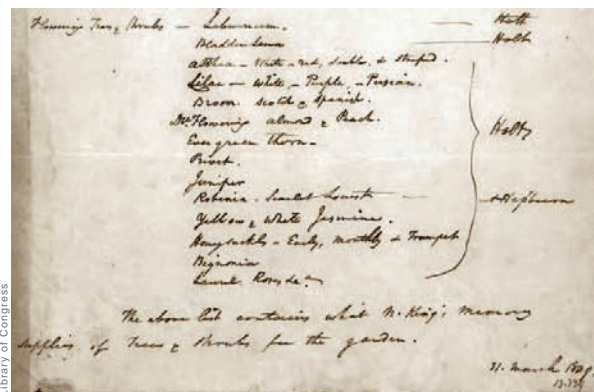 Flowering Trees & Shrubs — Liburnum. — Holt
Bladder Sena — Holt
althea - White - red, double, & striped.
Lilac — White - Purple - Persian.
Broom Scotch & Spanish.
Flowering almond & Peach. Holt
Evergreen thorn -
Privet.
Juniper
Robinia. Scarlet Locust — & Hepburn
Yellow & White Jasmine.
Honeysuckle - Early, monthly & Trumpet
Bignonia
Laurel Roses &c
The above list contains what N. King's memory
supplies of Trees & Shrubs for the garden.
31. March 1809.
Library of Congress